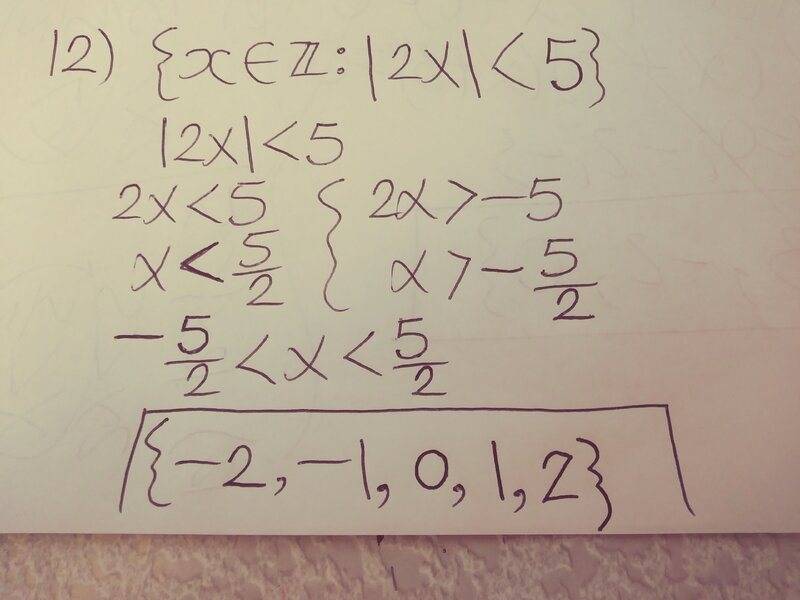 12) {x∈ℤ: |2x| < 5}
|2x| < 5
2x < 5 { 2x > -5
x < 5/2 { x > - 5/2
- 5/2 < x < 5/2
{-2, -1, 0, 1, 2}